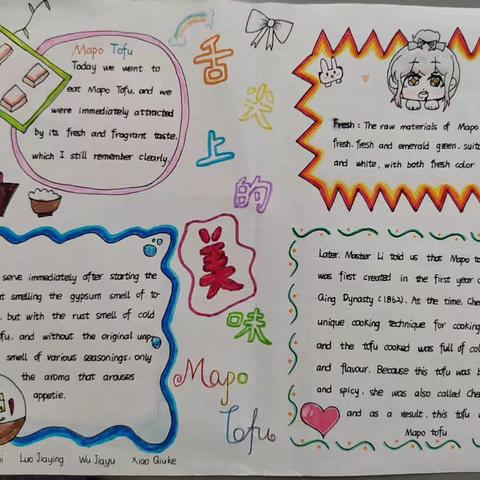 Mapo Tofu
Today we went to
eat Mapo Tofu, and we
were immediately attracted
by its fresh and fragrant taste,
which I still remember clearly.
舌尖上的美味
Mapo
Tofu
Fresh: The raw materials of Mapo
fresh, fresh and emerald green,
and white, with both fresh color
serve immediately after starting the
smelling the gypsum smell of
but with the rust smell of cold
and without the original
smell of various seasonings, only
the aroma that arouses
appetie.
Later, Master Li told us that Mapo
was first created in the first year
Qing Dynasty (1862). At the time,
unique cooking technique for cooking
and the tofu cooked was full of
and flavour. Because this tofu was
and spicy, she was also called
and as a result, this tofu
Mapo tofu
Luo Jiaying Wu Jiayu Xiao Qiuke